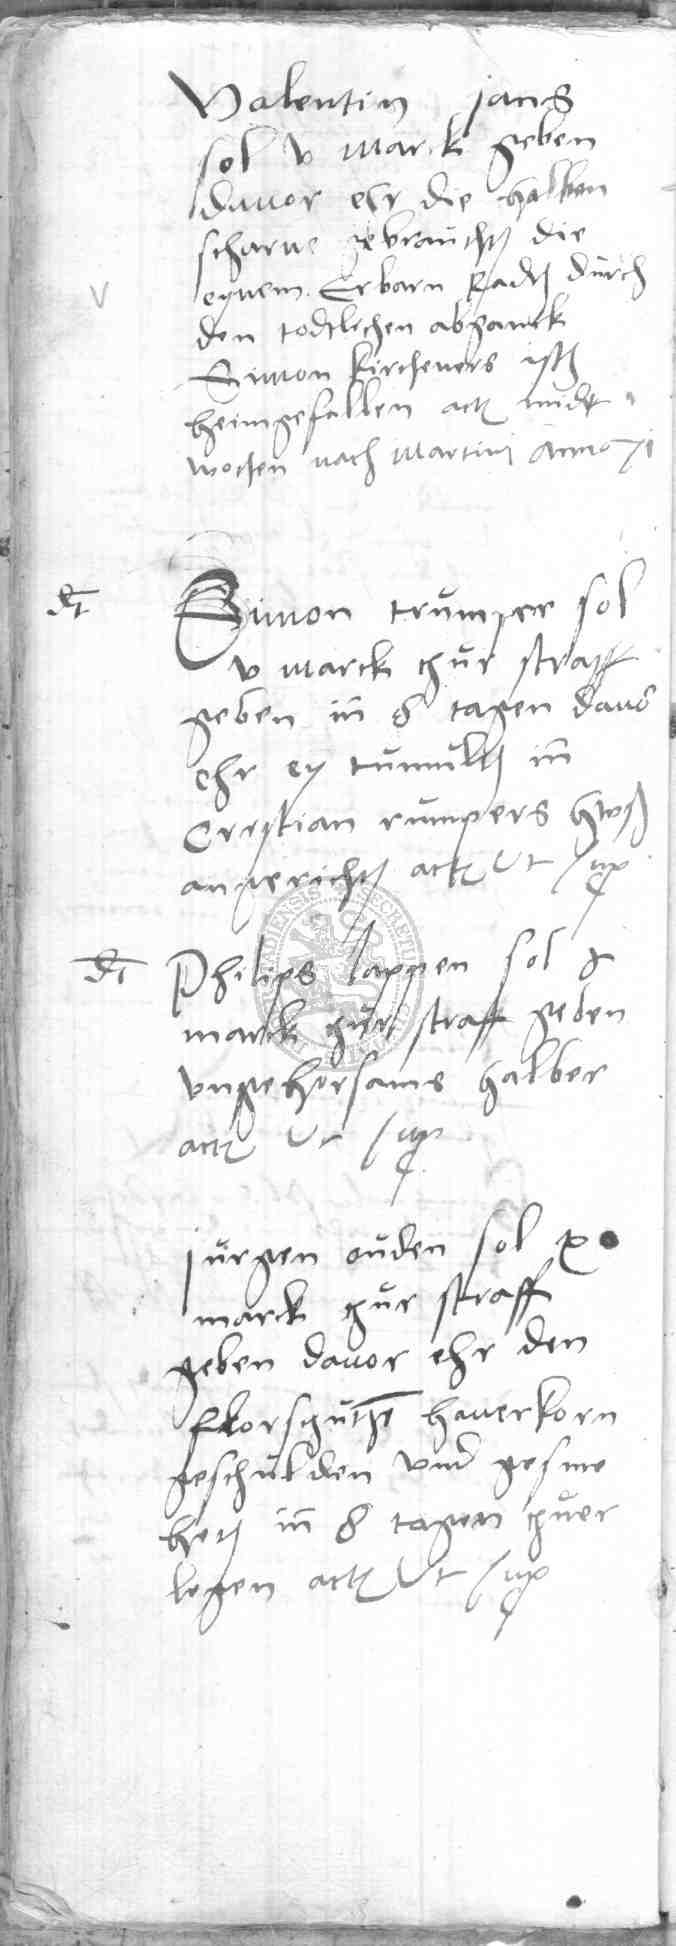 Valentin jans
sol v marck geben
davor ehr die halben
scharne gebrauchtt die
eynem Erbarn Radtt durch
den todtlichen abganck
Simon kircheners istt
heimgefallen actt midt
wochen nach Martini Anno
dt Simon trumper sol
v marck zur straff
geben in 8 tagen davor
ehr ey tumultt in
Cristian rumpers hws
angerichtt actt Ut sup
dt Philips lappen sol x
marck zur straff geben
ungehorsams halber
actt Ut sup
jurgen ouden sol x
marck zur straff
geben davor ehr den
florschutzen haverkorn
geschulden und gesme
hett in 8 tagen zuer
legen actt Ut sup